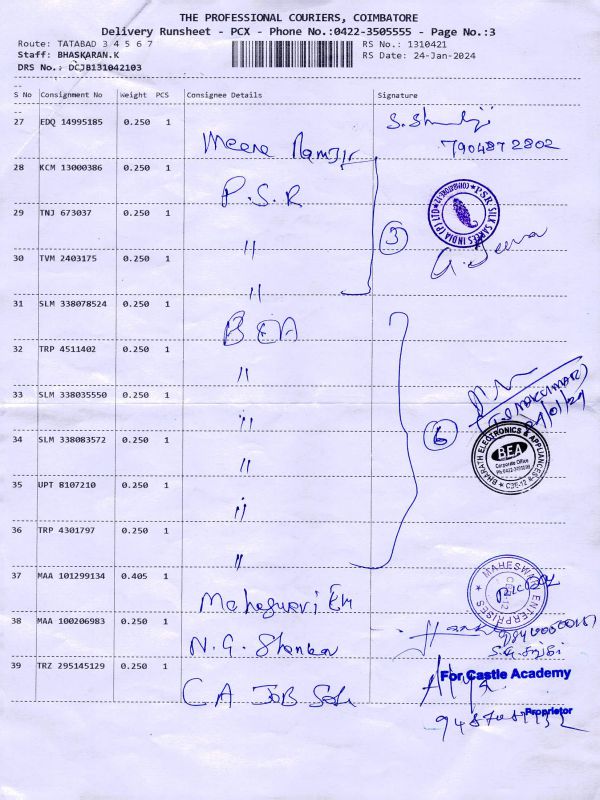 THE PROFESSIONAL COURIERS, COIMBATORE
Delivery Runsheet - PCX - Phone No.:0422-3505555 - Page No.:3
Route: TATABAD 3 4 5 6 7 RS No.: 1310421
Staff: BHASKARAN.K RS Date: 24-Jan-2024
DRS No.: DCJB131042103
S No Consignment No Weight PCS Consignee Details Signature
27 EDQ 14995185 0.250 1
Meena 7904872802
28 KCM 13000386 0.250 1
P.S.R
P.S.R. SILK SAREES INDIA (P) LTD
29 TNJ 673037 0.250 1
" 3
30 TVM 2403175 0.250 1
"
31 SLM 338078524 0.250 1
BEA
32 TRP 4511402 0.250 1
"
33 SLM 338035550 0.250 1
"
34 SLM 338083572 0.250 1
" 6
BHARATH ELECTRONICS & APPLIANCES
BEA
Corporate Office
35 UPT 8107210 0.250 1
"
36 TRP 4301797 0.250 1
"
37 MAA 101299134 0.405 1
Maheswari
MAHESWARI ENTERPRISES
38 MAA 100206983 0.250 1
N.G.
39 TRZ 295145129 0.250 1
For Castle Academy
CA JOB
Proprietor